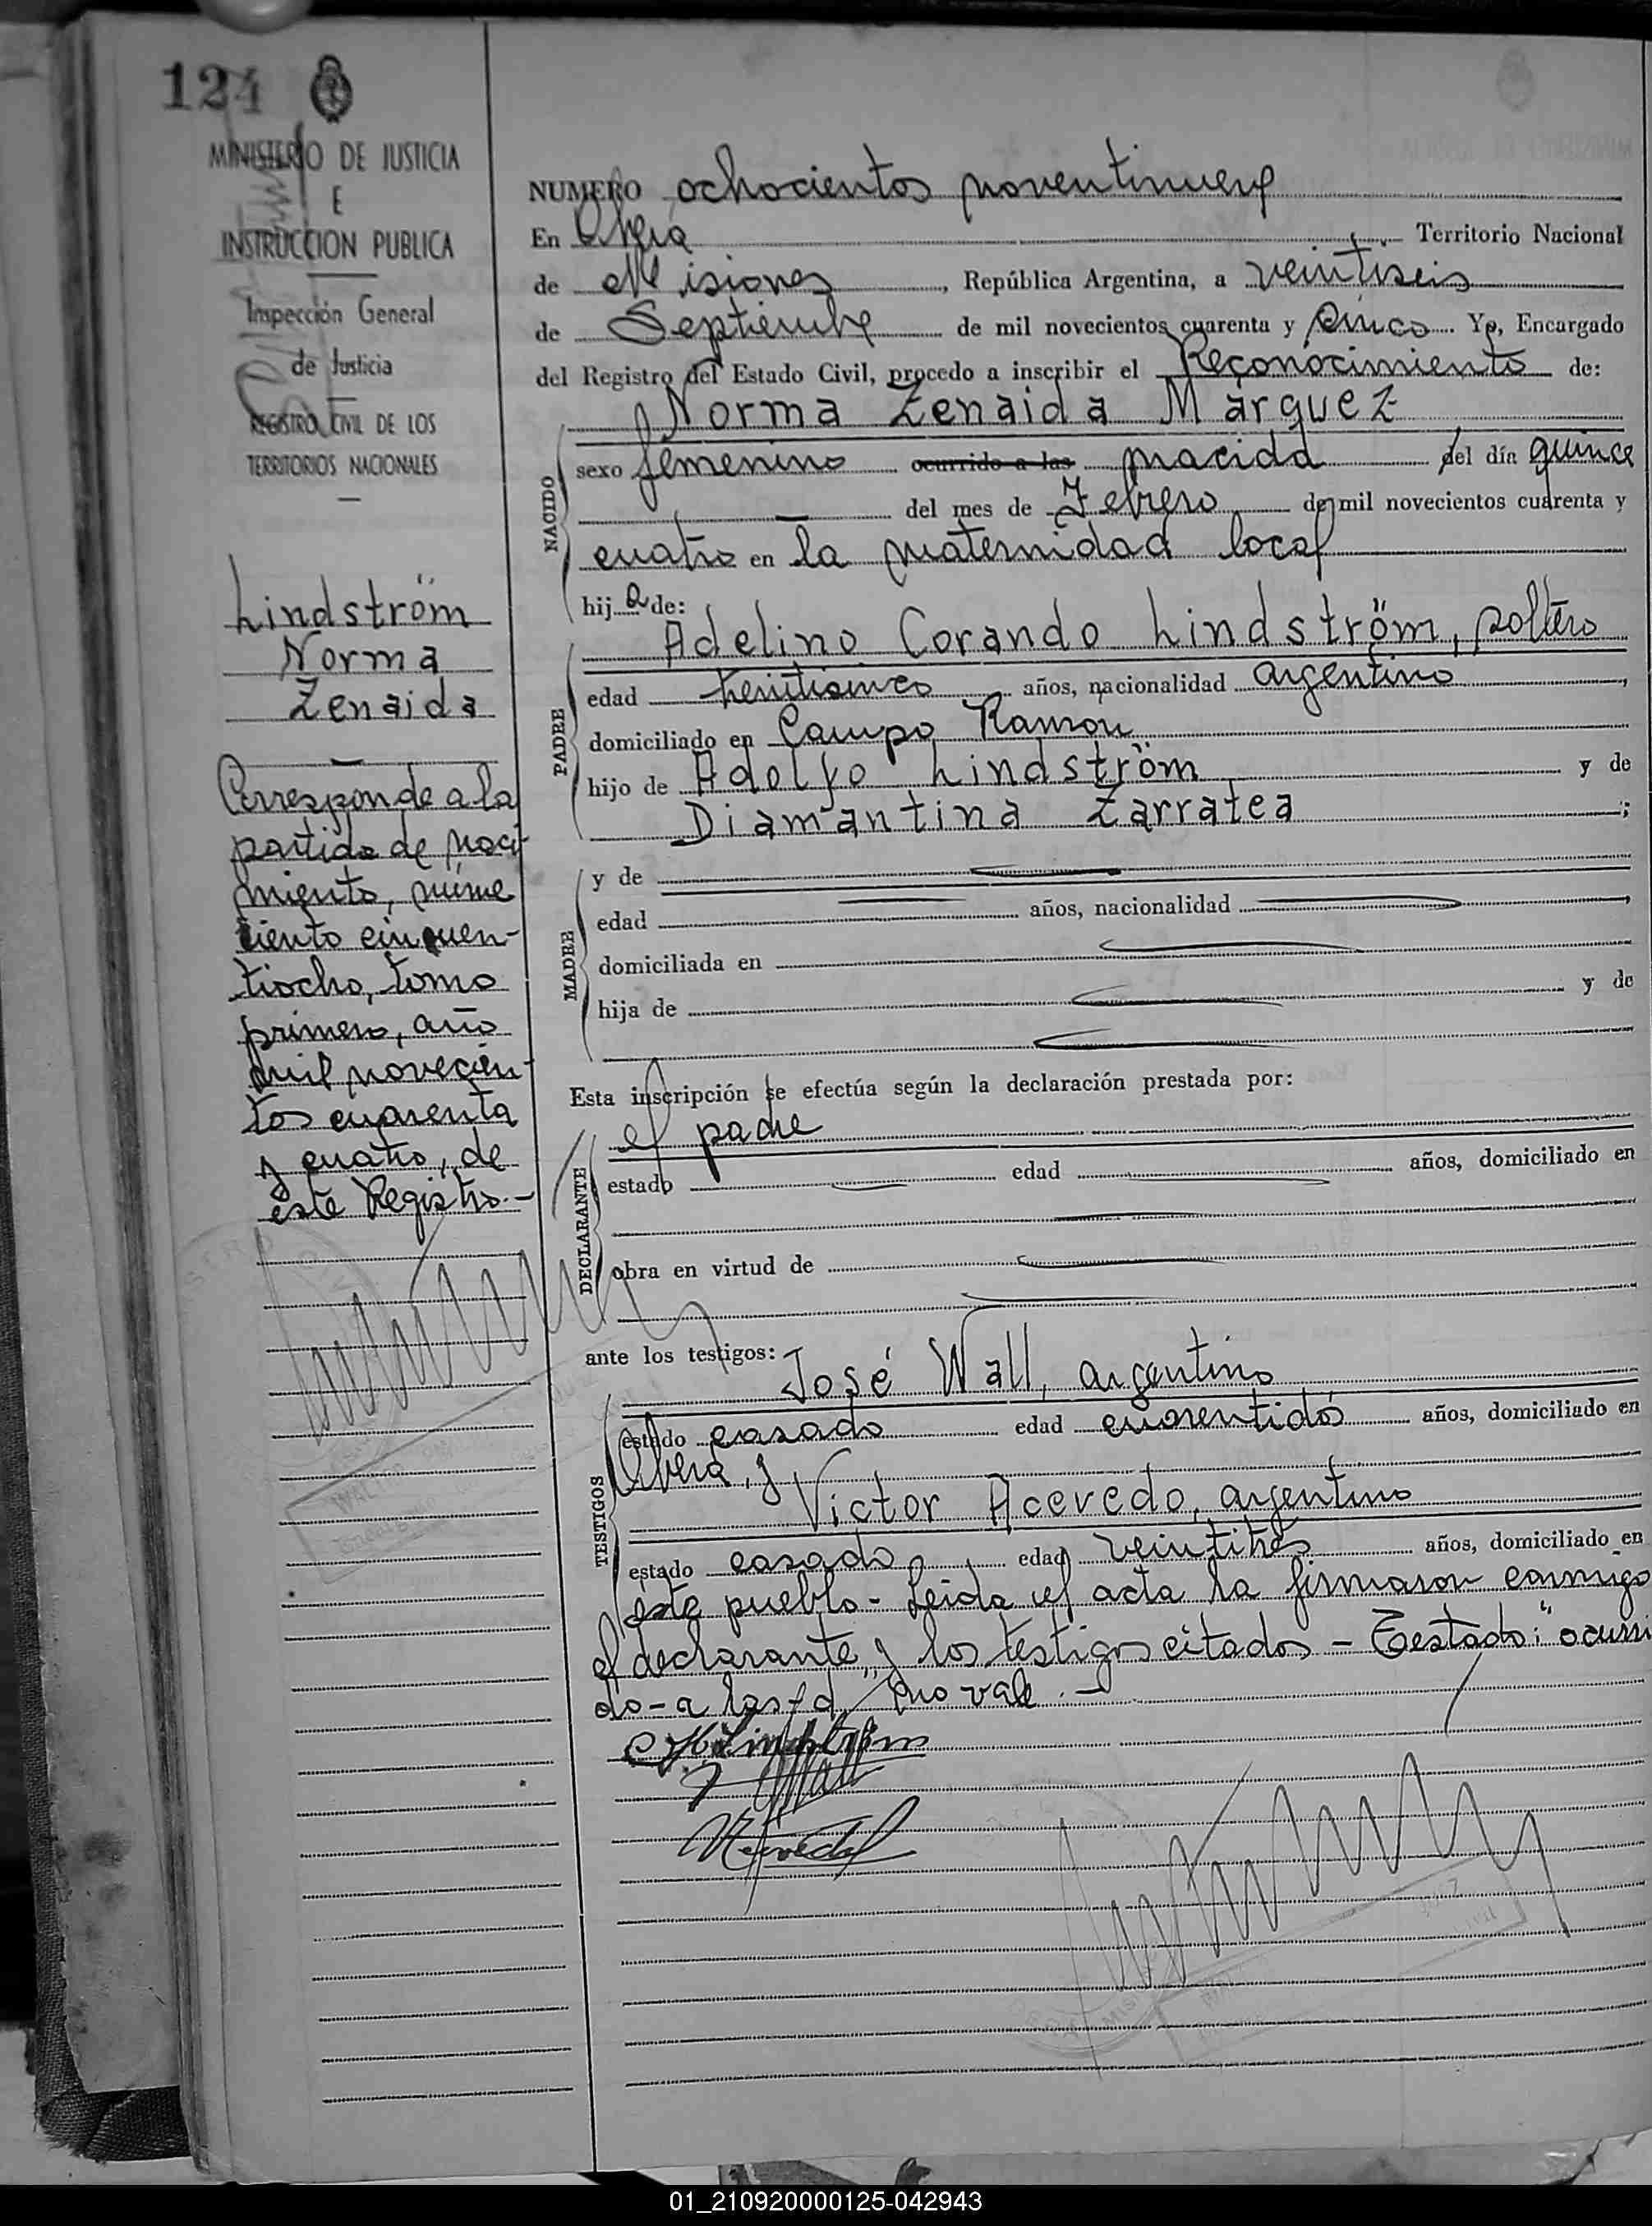 124
MINISTERIO DE JUSTICIA
E
INSTRUCCION PUBLICA
Inspección General
de Justicia
REGISTRO CIVIL DE LOS
TERRITORIOS NACIONALES
Lindström
Norma
Zenaida
Corresponde a la
partida de naci-
miento, núme
ciento cincuen-
tiocho, tomo
primero, año
mil novecien-
tos cuarenta
y cuatro, de
este Registro.-
NUMERO ochocientos noventinueve
En Oberá Territorio Nacional
de Misiones, República Argentina, a veintiseis
de Septiembre de mil novecientos cuarenta y cinco. Yo, Encargado
del Registro del Estado Civil, procedo a inscribir el Reconocimiento de:
Norma Zenaida Marquez
NACIDO
sexo femenino ocurrido a las nacida del día quince
del mes de Febrero de mil novecientos cuarenta y
cuatro en la maternidad local
hija de:
PADRE
Adelino Corando Lindström, soltero
edad años, nacionalidad argentino
domiciliado en Campo Ramon
hijo de Adolfo Lindström y de
Diamantina Zarratea ;
MADRE
y de
edad años, nacionalidad
domiciliada en
hija de y de
Esta inscripción se efectúa según la declaración prestada por:
DECLARANTE
el padre
estado edad años, domiciliado en
obra en virtud de
ante los testigos:
TESTIGOS
José Wall, argentino
estado casado edad cuarentidós años, domiciliado en
Oberá, y
Victor Acevedo, argentino
estado casado, edad veintitrés años, domiciliado en
este pueblo- Leida el acta la firmaron conmigo
el declarante, y los testigos citados - Testado: "ocurri
do-a las-d" no vale.-
Lindström
Wall
01_210920000125-042943